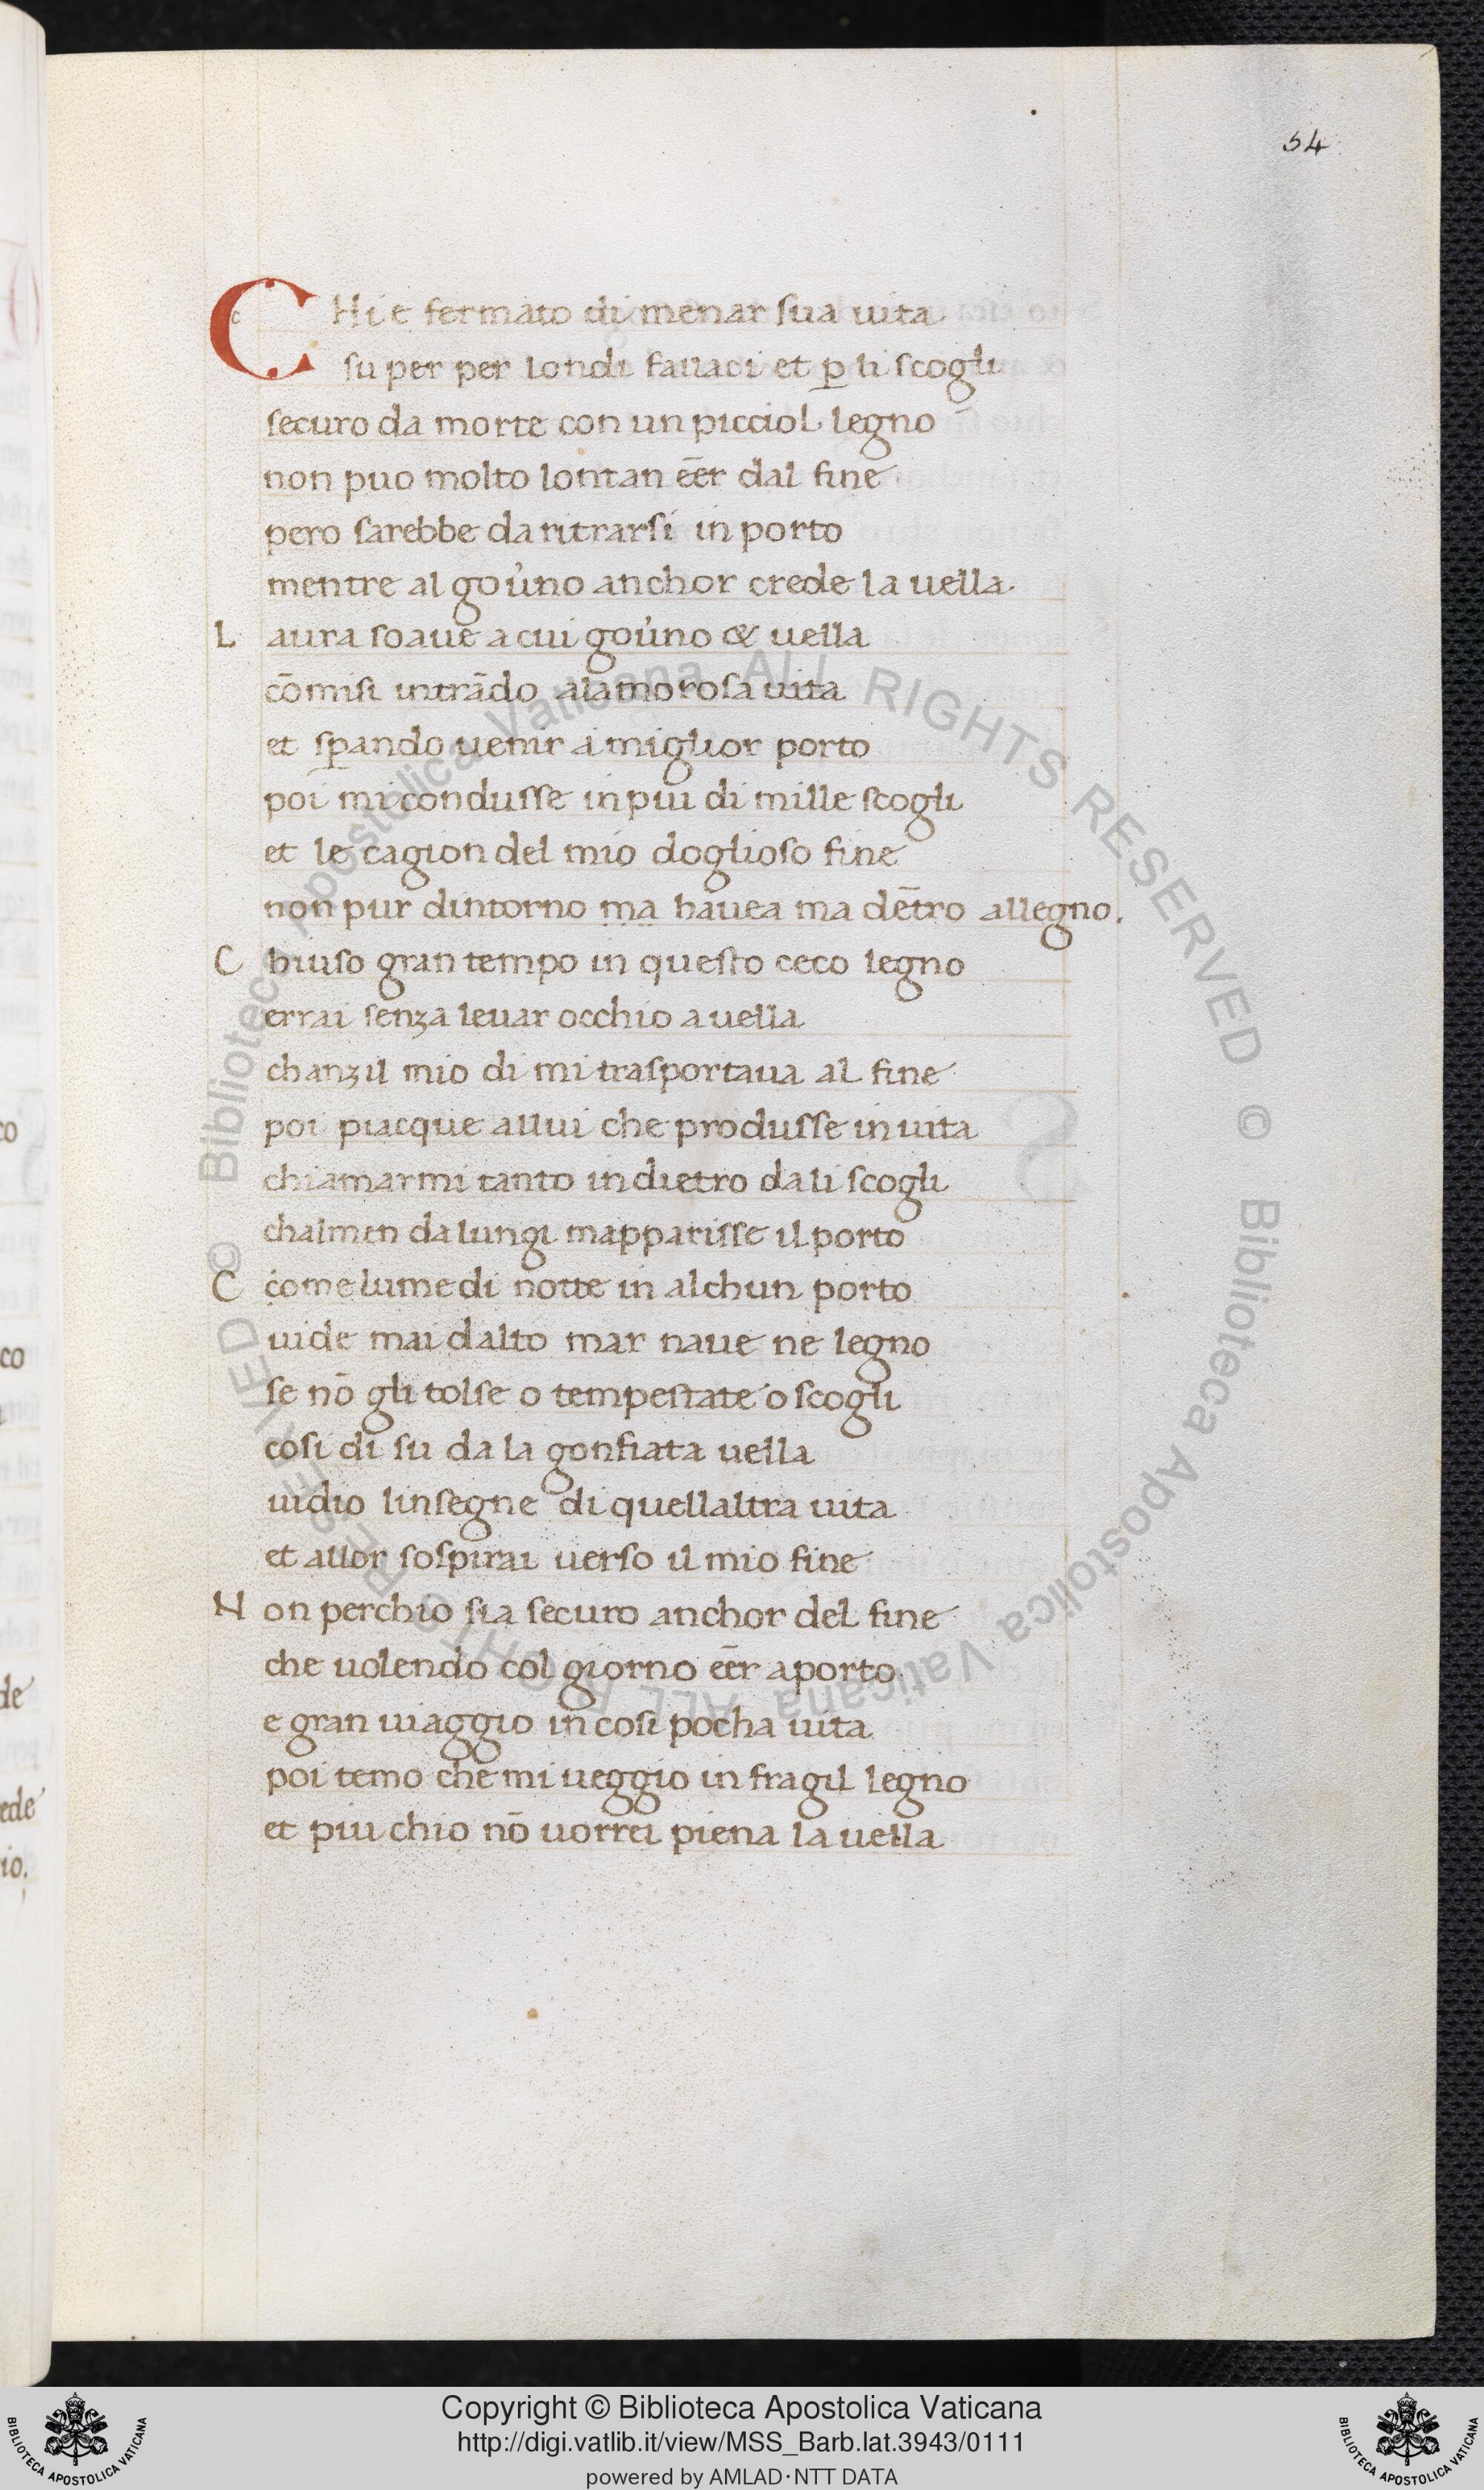 54
CHi e fermato di menar sua uita
su per per londi fallaci et p̱ li scogli
securo da morte con un picciol legno
non puo molto lontan eēr dal fine
pero sarebbe da ritrarsi in porto
mentre al gou̓no anchor crede la uella.
L aura soaue a cui gou̓no & uella
cōmisi intrādo alamorosa uita
et sp̱ando uenir a miglior porto
poi mi condusse in piu di mille scogli
et le cagion del mio doglioso fine
non pur dintorno ma hauea ma dētro allegno.
C hiuso gran tempo in questo ceco legno
errai senza leuar occhio a uella
chanzil mio di mi trasportaua al fine
poi piacque allui che produsse in uita
chiamarmi tanto indietro da li scogli
chalmen da lungi mapparisse il porto
C come lume di notte in alchun porto
uide mai dalto mar naue ne legno
se nō gli tolse o tempestate o scogli
cosi di su da la gonfiata uella
uidio linsegne di quellaltra uita
et allor sospirai uerso il mio fine
N on perchio sia securo anchor del fine
che uolendo col giorno eēr aporto
e gran uiaggio in cosi pocha uita
poi temo che mi ueggio in fragil legno
et piu chio nō uorrei piena la uella
© Biblioteca Apostolica Vaticana ALL RIGHTS RESERVED © Biblioteca Apostolica Vaticana ALL RIGHTS RESERVED
Copyright © Biblioteca Apostolica Vaticana
http://digi.vatlib.it/view/MSS_Barb.lat.3943/0111
powered by AMLAD·NTT DATA
BIBLIOTECA APOSTOLICA VATICANA
BIBLIOTECA APOSTOLICA VATICANA